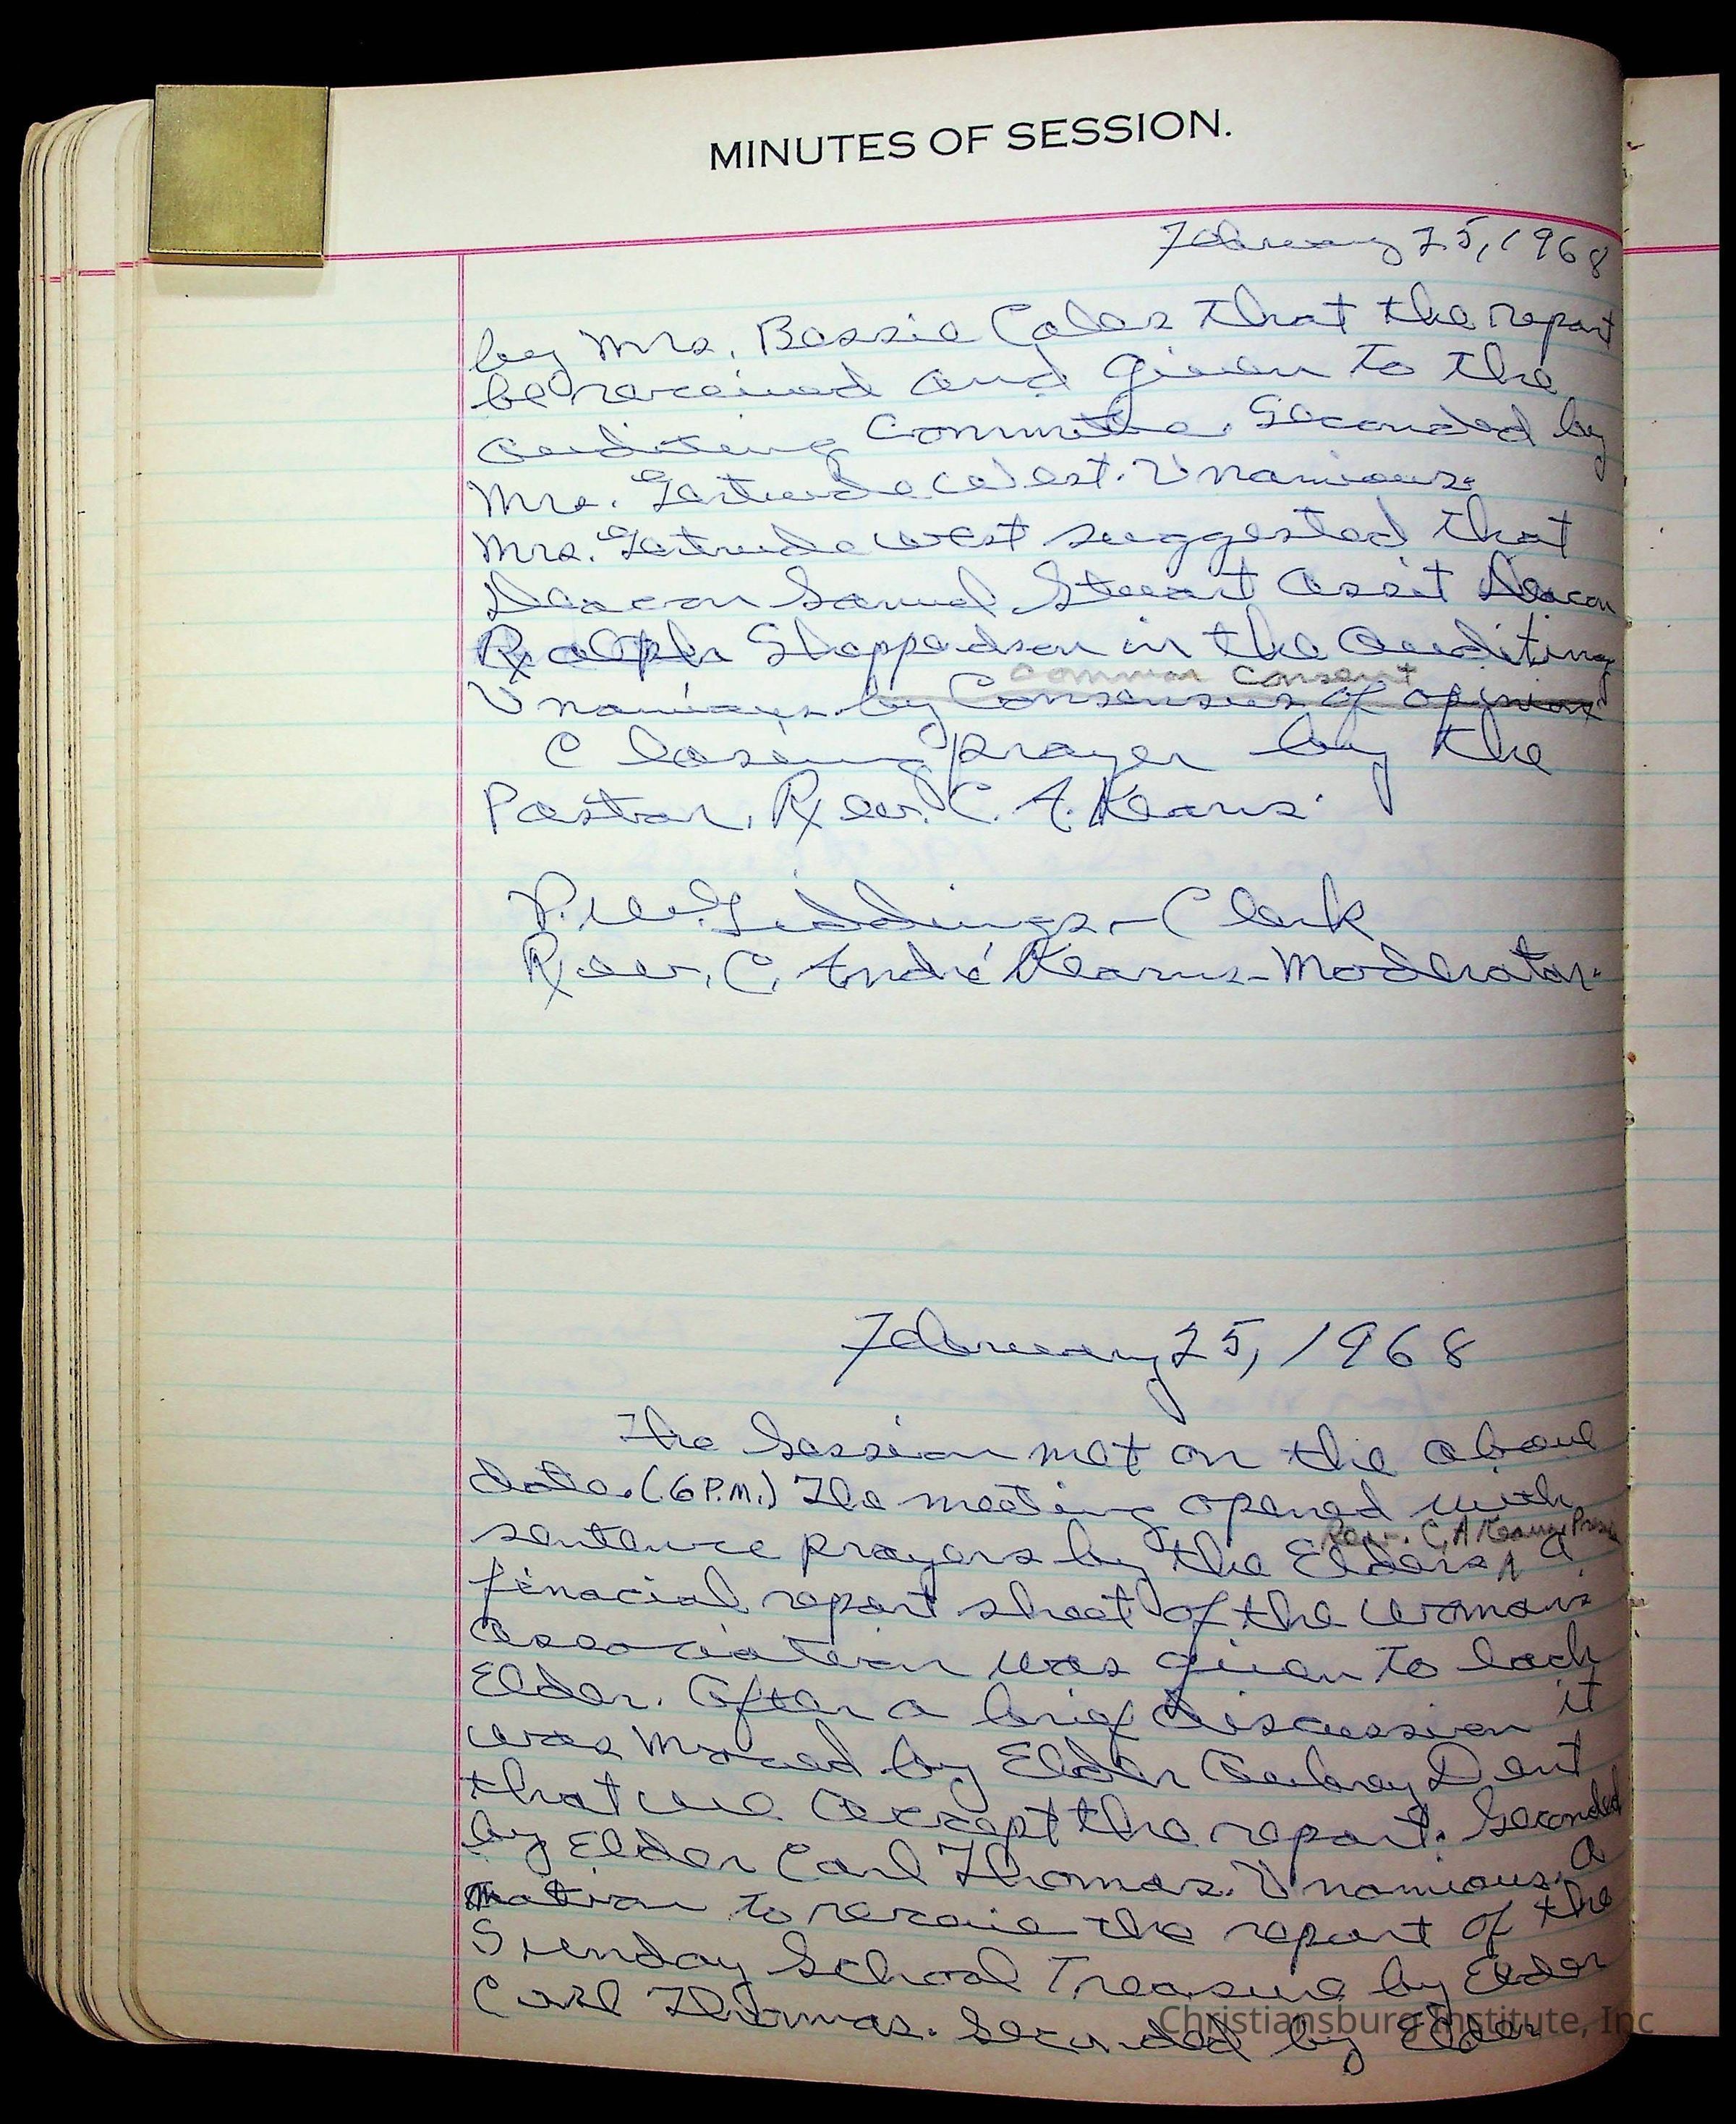 MINUTES OF SESSION.
February 25, 1968
by Mrs. Bessie Coles that the report
be received and given to the
auditing Committee. Seconded by
Mrs. Gertrude West. Unamious.
Mrs. Gertrude West suggested that
Deacon Samuel Stewart assit Deacon
Ralph Sheppardson in the auditing
common consent
Unamious by Consensus of opinion
Closing prayer by the
Pastor, Rev. C. A. Kearns.
P. W. Giddings - Clerk
Rev. C. André Kearns - Moderator.
February 25, 1968
The Session met on the above
date. (6 P.M.) The meeting opened with
Rev. C. A Kearns
sentence prayers by the Elders, a
finacial report sheet of the woman's
association was given to each
Elder. After a brief discussion it
was moved by Elder Aubrey Dent
that we accept the report. Seconded
by Elder Carl Thomas. Unamious. A
motion to receive the report of the
Sunday School Treasure by Elder
Carl Thomas. Seconded by Elder
Christiansburg Institute, Inc